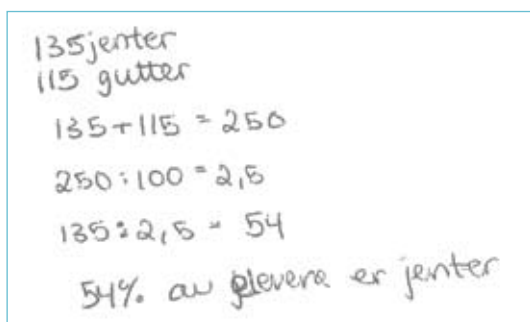 135 jenter
115 gutter
135+115 = 250
250:100 = 2,5
135:2,5 = 54
54% av elevene er jenter